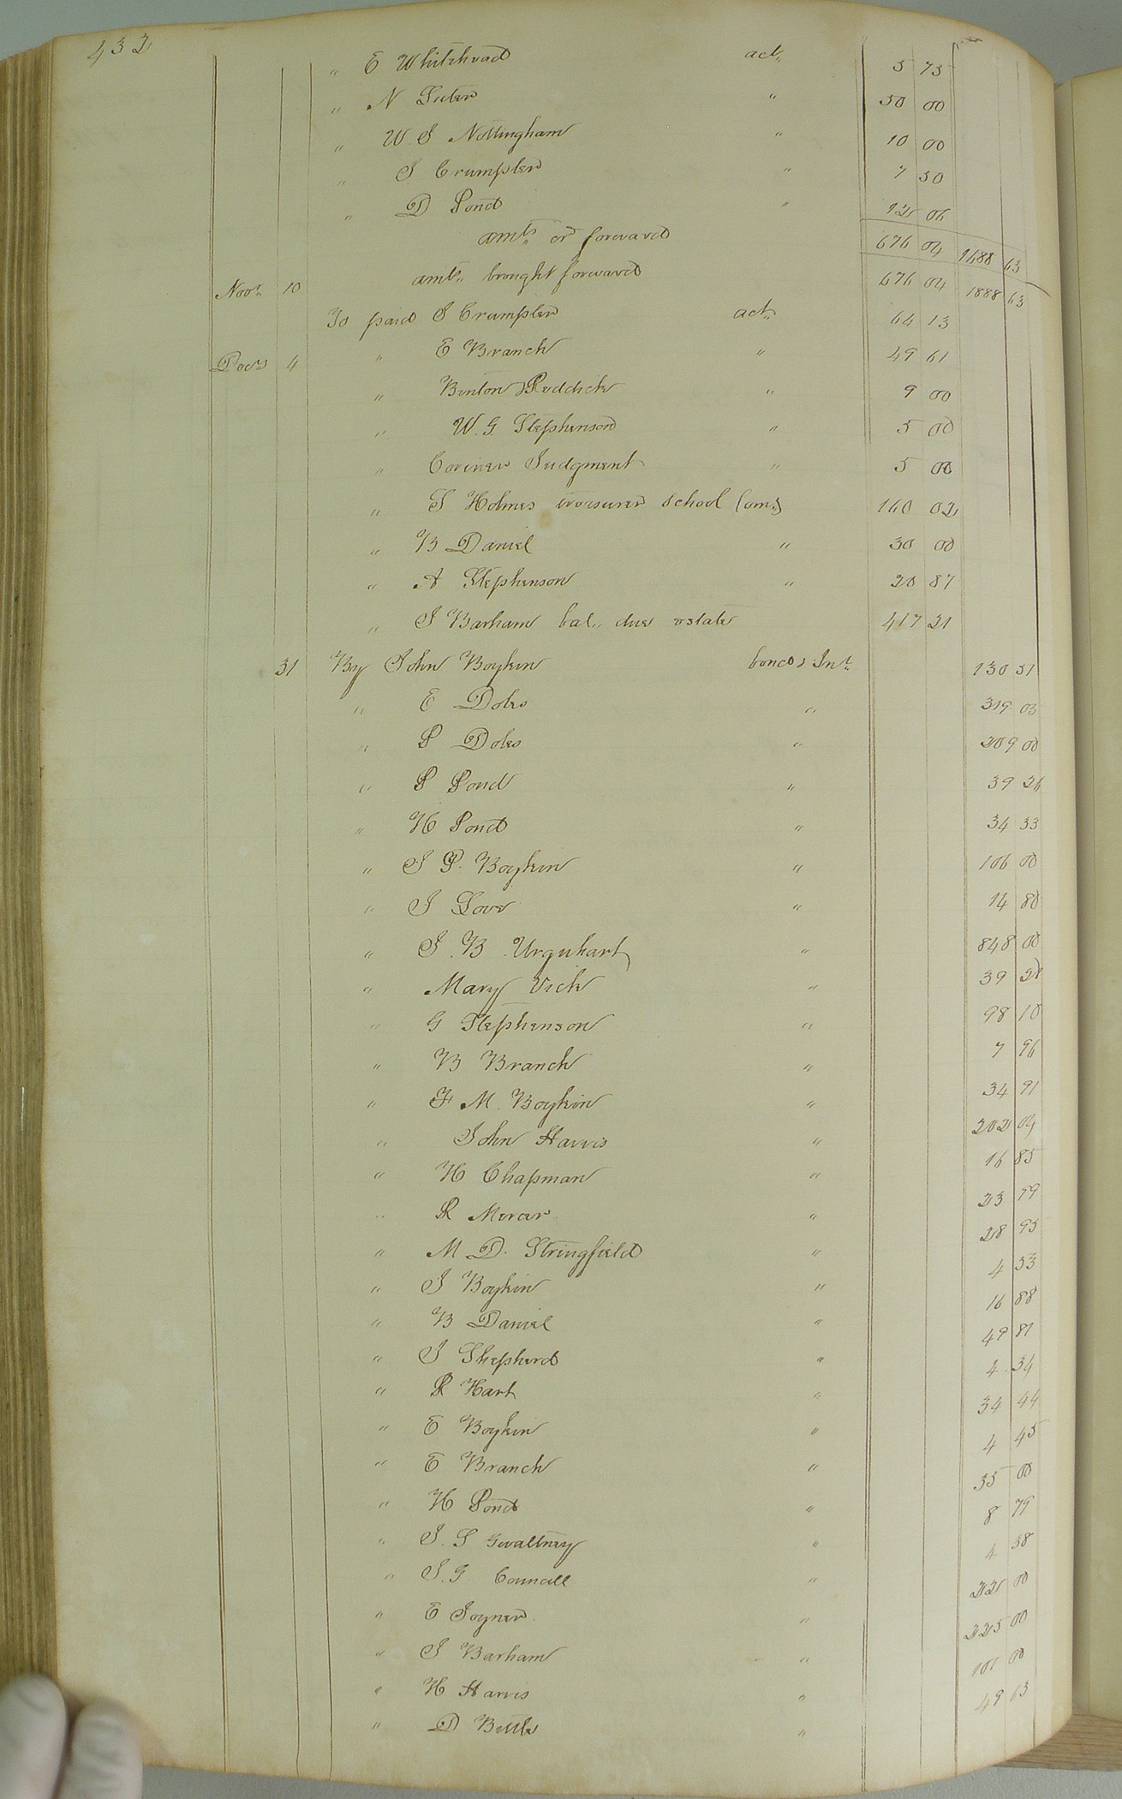 432
" E Whitehead act. 5 75
" N Teter " 50 00
" W S Nottingham " 10 00
" J Crumpler 7 50
" D Pond " 12 06
amts. crd forward 676 04 1688 63
Novr. 10 amts. brought forward 676 04 1888 63
To paid J Crumpler act. 64 13
Decr 4 " E Branch " 49 61
" Benton & Reddick " 9 00
" W. G Stephenson " 5 00
" Coriner Judgment " 5 00
" J Holmes treasurer school Com. 160 02
" B Daniel " 30 00
" A Stephenson " 20 87
" J Barham bal. due estate 417 21
31 By John Boykin bond & Int. 130 51
" E Doles " 319 03
" P Doles " 209 00
" P Pond " 39 26
" H Pond " 34 33
" J P. Boykin " 106 00
" J Love " 14 80
" J. B. Urquhart " 848 00
" Mary Vick " 39 20
" G Stephenson " 98 10
" B Branch " 7 96
" F M. Boykin " 34 91
" John Harris " 202 04
" H Chapman " 16 85
" R Mercer " 23 79
" M D. Stringfield " 28 95
" J Boykin " 4 53
" B Daniel " 16 88
" J Shepherd " 49 81
" R Hart " 4 34
" E Boykin " 34 44
" E Branch " 4 45
" H Pond " 35 00
" J. S Gwaltney " 8 79
" J. G Councill " 4 58
" E Joyner " 22 00
" J Barham " 225 00
" H Harris " 101 00
" D Bettle " 49 63